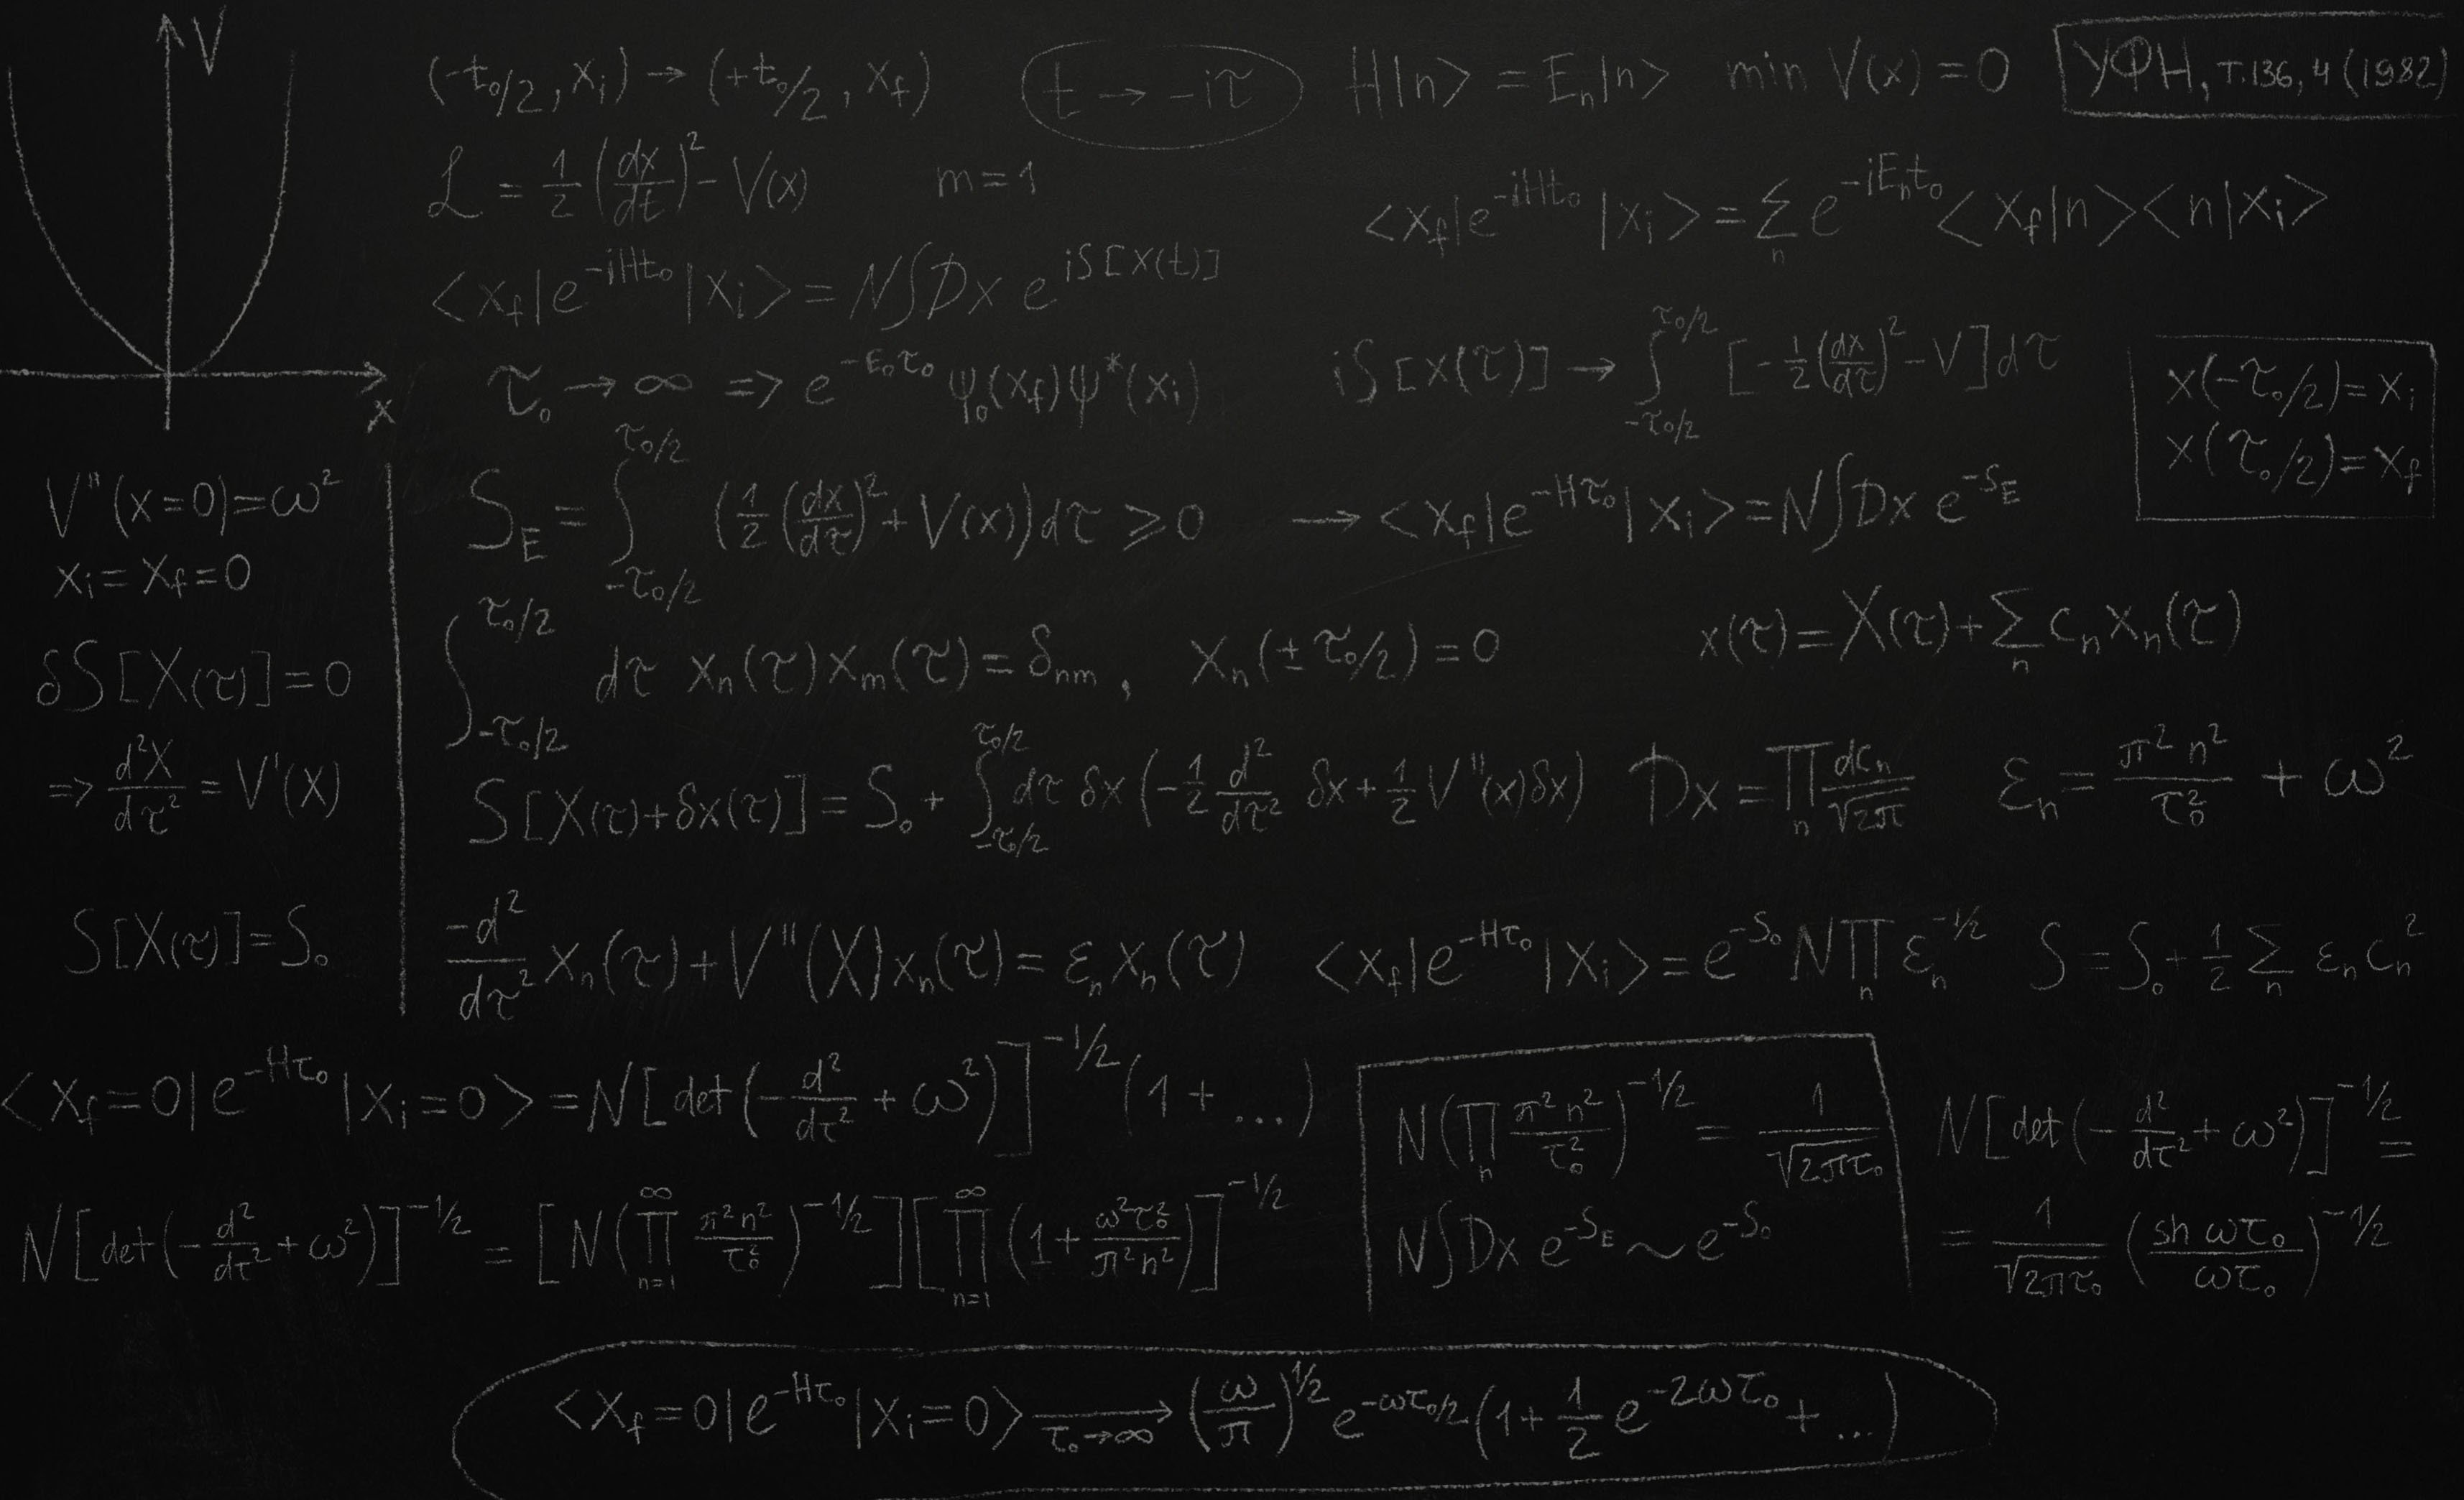 V
x
(-t₀/2, xᵢ) → (+t₀/2, x_f)
t → -iτ
H|n> = Eₙ|n>
min V(x) = 0
УФН, т.136, 4 (1982)
ℒ = 1/2 (dx/dt)² - V(x)
m = 1
<x_f|e^{-iHt₀}|xᵢ> = Σ_n e^{-iEₙt₀} <x_f|n><n|xᵢ>
<x_f|e^{-iHt₀}|xᵢ> = N∫Dx e^{iS[x(t)]}
τ₀ → ∞ => e^{-E₀τ₀} ψ₀(x_f)ψ*(xᵢ)
iS[x(τ)] → ∫_{-τ₀/2}^{τ₀/2} [-1/2 (dx/dτ)² - V]dτ
x(-τ₀/2) = xᵢ
x(τ₀/2) = x_f
V''(x=0) = ω²
xᵢ = x_f = 0
δS[X(τ)] = 0
=> d²X/dτ² = V'(X)
S[X(τ)] = S₀
S_E = ∫_{-τ₀/2}^{τ₀/2} (1/2 (dx/dτ)² + V(x))dτ ⩾ 0 → <x_f|e^{-Hτ₀}|xᵢ> = N∫Dx e^{-S_E}
∫_{-τ₀/2}^{τ₀/2} dτ xₙ(τ)xₘ(τ) = δₙₘ, xₙ(±τ₀/2) = 0
x(τ) = X(τ) + Σ_n cₙxₙ(τ)
S[X(τ)+δx(τ)] = S₀ + ∫_{-τ₀/2}^{τ₀/2} dτ δx(-1/2 d²/dτ² δx + 1/2 V''(x)δx)
Dx = Π_n dcₙ/√2π
εₙ = π²n²/τ₀² + ω²
-d²/dτ² xₙ(τ) + V''(X)xₙ(τ) = εₙxₙ(τ)
<x_f|e^{-Hτ₀}|xᵢ> = e^{-S₀} N Π_n εₙ^{-1/2}
S = S₀ + 1/2 Σ_n εₙcₙ²
<x_f=0|e^{-Hτ₀}|xᵢ=0> = N[det(-d²/dτ² + ω²)]^{-1/2} (1+...)
N(Π_n π²n²/τ₀²)^{-1/2} = 1/√2πτ₀
N∫Dx e^{-S_E} ~ e^{-S₀}
N[det(-d²/dτ² + ω²)]^{-1/2} =
= 1/√2πτ₀ (sh ωτ₀/ωτ₀)^{-1/2}
N[det(-d²/dτ² + ω²)]^{-1/2} = [N(Π_{n=1}^{∞} π²n²/τ₀²)^{-1/2}][Π_{n=1}^{∞} (1 + ω²τ₀²/π²n²)]^{-1/2}
<x_f=0|e^{-Hτ₀}|xᵢ=0> →_{τ₀→∞} (ω/π)^{1/2} e^{-ωτ₀/2} (1 + 1/2 e^{-2ωτ₀} + ...)